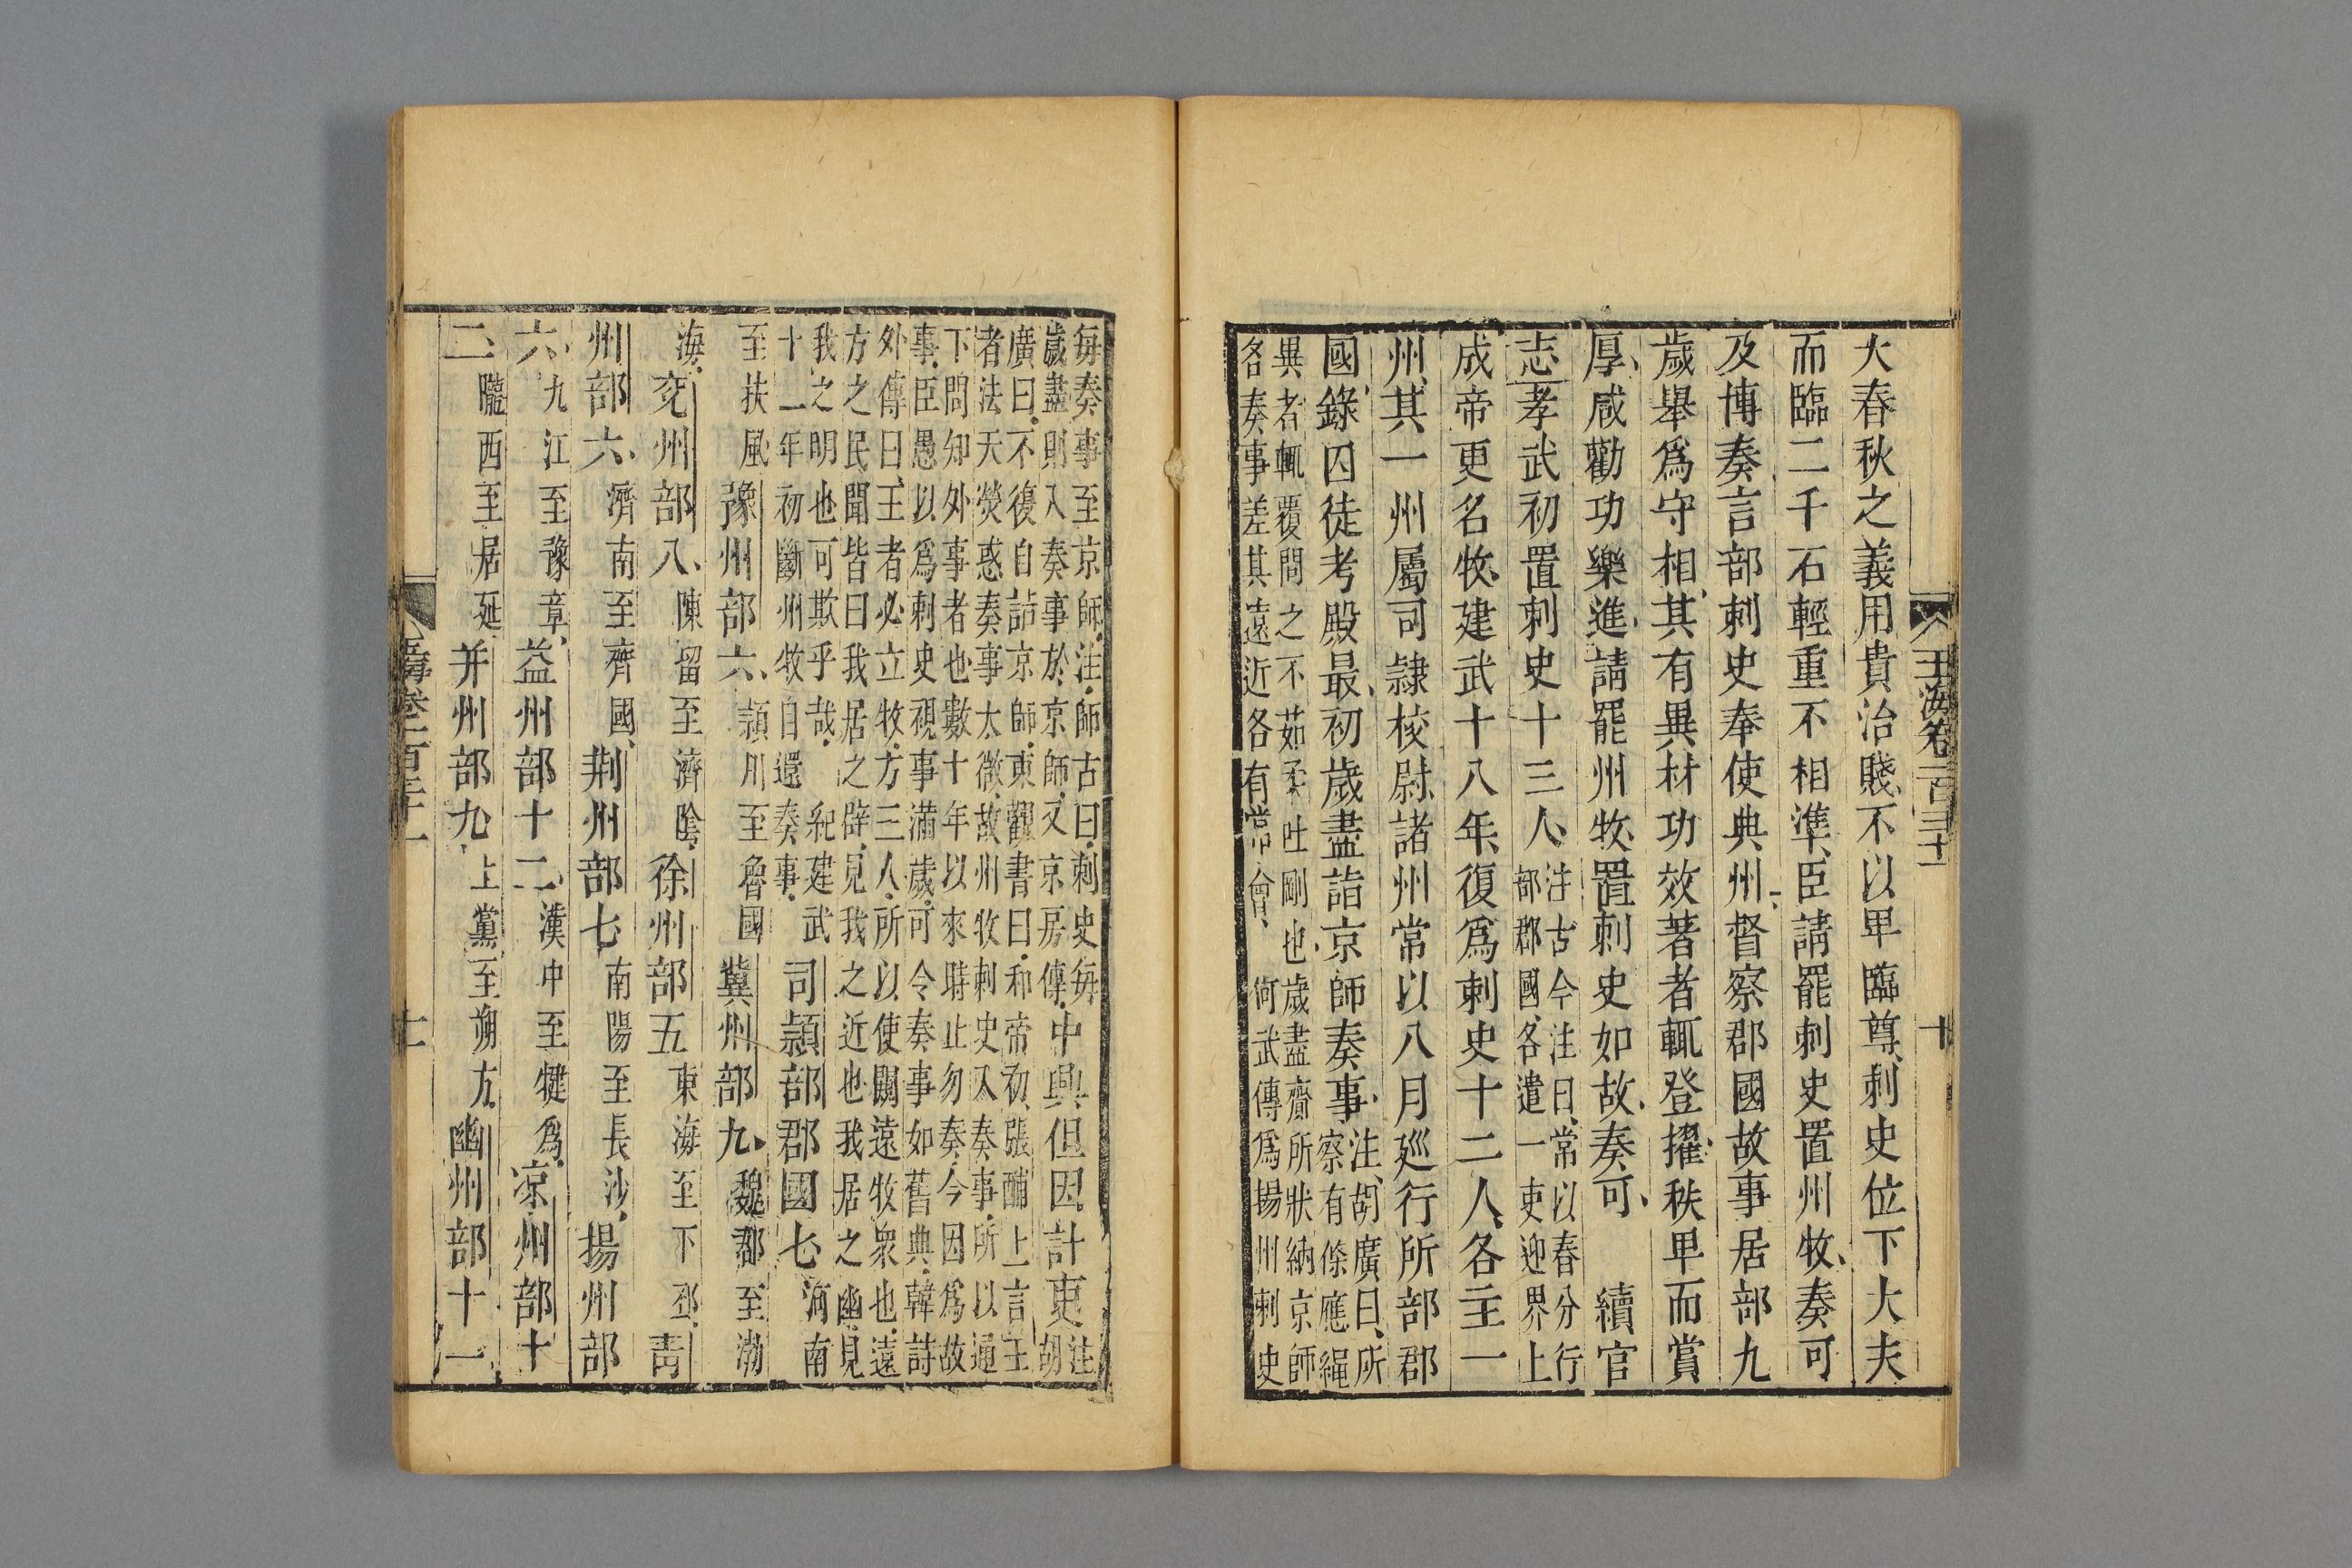 玉海卷一百三十一
十
大春秋之義用貴治賤不以卑臨尊刺史位下大夫
而臨二千石輕重不相準臣請罷刺史置州牧奏可
及博奏言部刺史奉使典州督察郡國故事居部九
歲舉爲守相其有異材功效著者輒登擢秩卑而賞
厚咸勸功樂進請罷州牧置刺史如故奏可　續官
志孝武初置刺史十三人注古今注曰常以春分行部郡國各遣一吏迎界上
成帝更名牧建武十八年復爲刺史十二人各主一
州其一州屬司隷校尉諸州常以八月廵行所部郡
國錄囚徒考殿最初歲盡詣京師奏事注胡廣曰所察有條應繩
異者輒覆問之不茹柔吐剛也歲盡齎所狀納京師
各奏事差其遠近各有常會　何武傳爲揚州刺史
每奏事至京師注師古曰刺史每
歲盡則入奏事於京師又京房傳中興但因計吏注胡
廣曰不復自詣京師東觀書曰和帝初張酺上言王
者法天熒惑奏事太微故州牧刺史入奏事所以通
下問知外事者也數十年以來時止勿奏今因爲故
事臣愚以爲刺史視事滿歲可令奏事如舊典韓詩
外傳曰王者必立牧方三人所以使闚遠牧衆也遠
方之民聞皆曰我居之辟見我之近也我居之幽見
我之明也可欺乎哉　紀建武
十一年初斷州牧自還奏事司隸部郡國七河南
至扶風豫州部六潁川至魯國冀州部九魏郡至渤
海兗州部八陳留至濟陰徐州部五東海至下邳靑
州部六濟南至齊國荆州部七南陽至長沙揚州部
六九江至豫章益州部十二漢中至犍爲凉州部十
二隴西至居延并州部九上黨至朔方幽州部十一
玉海卷一百三十一
十一